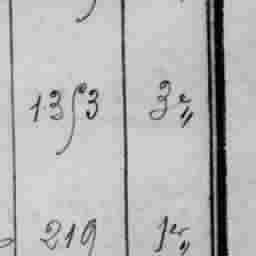 1353 3e„
219 1er„